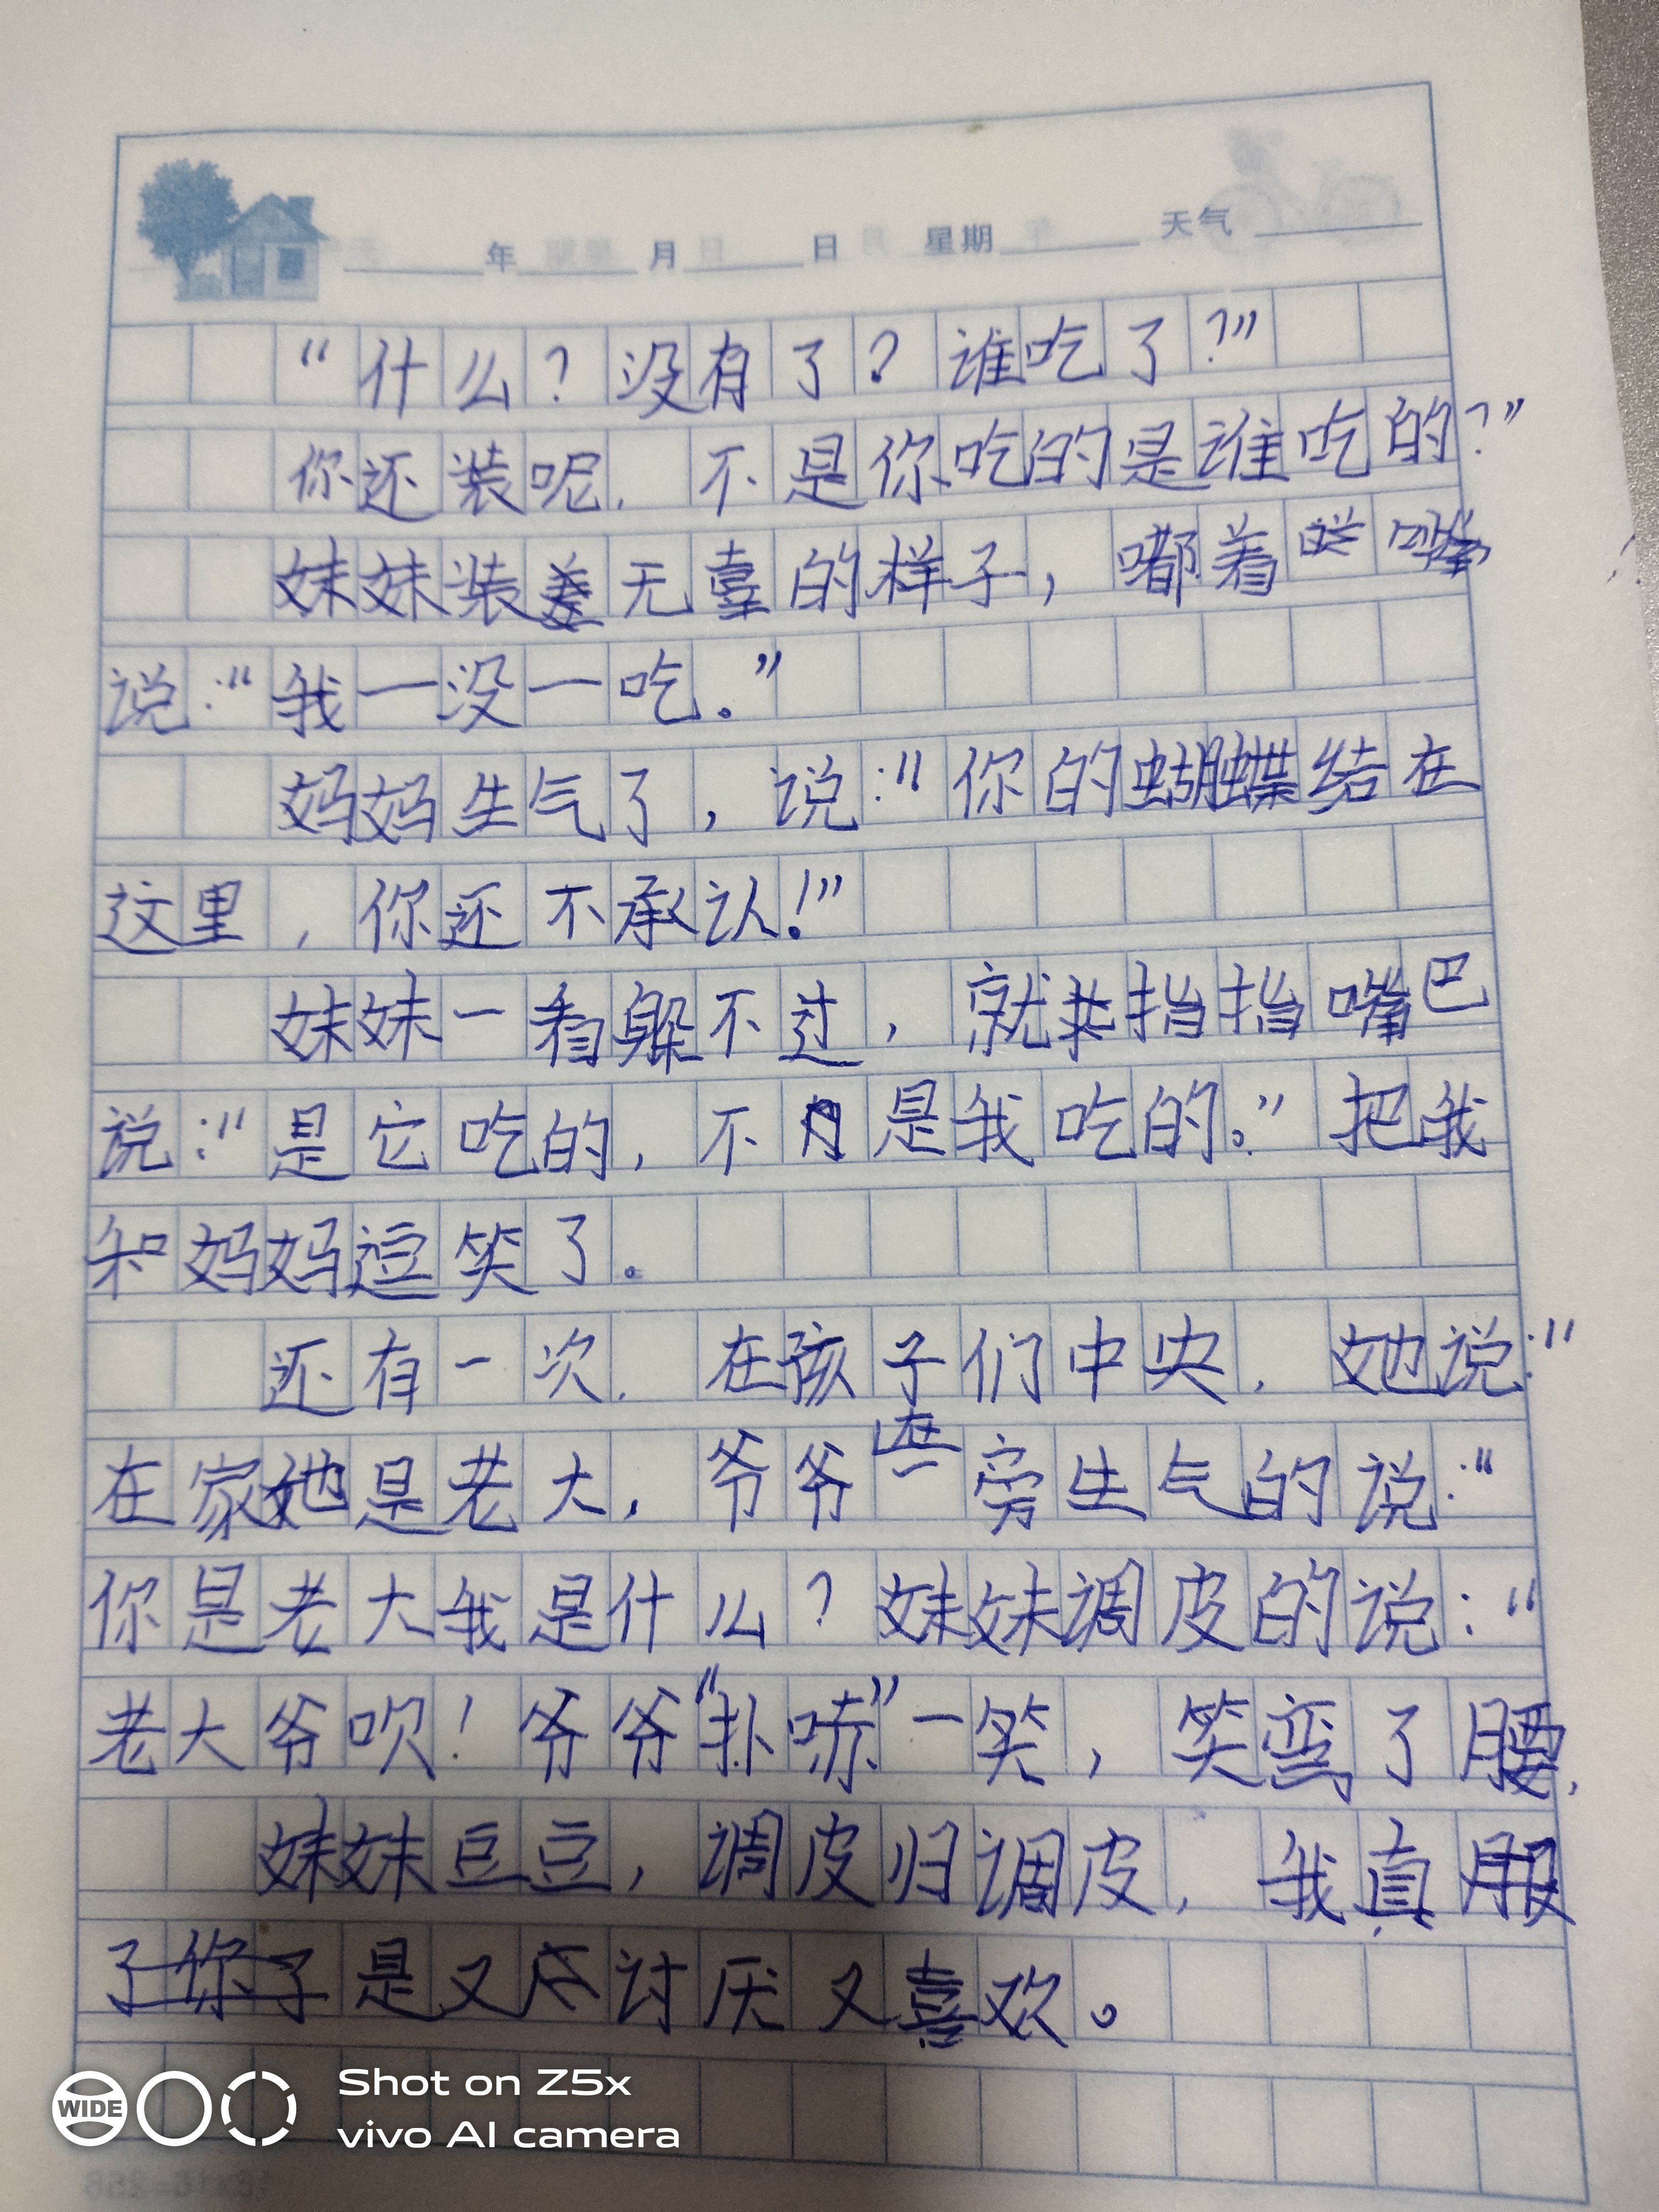 年 月 日 星期 天气
“什么？没有了？谁吃了？”
你还装呢，不是你吃的是谁吃的？”
妹妹装无辜的样子，嘟着嘴
说：“我一没一吃。”
妈妈生气了，说：“你的蝴蝶结在
这里，你还不承认！”
妹妹一看躲不过，就指指嘴巴
说：“是它吃的，不是我吃的。”把我
和妈妈逗笑了。
还有一次，在孩子们中央，她说：“
在家她是老大，爷爷在一旁生气的说：“
你是老大我是什么？妹妹调皮的说：“
老大爷呗！爷爷“扑哧”一笑，笑弯了腰，
妹妹豆豆，调皮归调皮，我真服
了你了是又讨厌又喜欢。
WIDE
Shot on Z5x
vivo AI camera